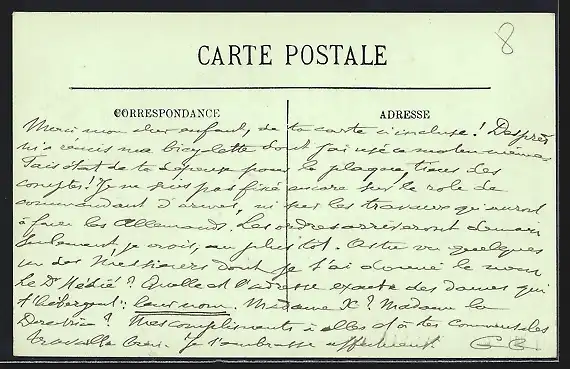 8
CARTE POSTALE
CORRESPONDANCE
ADRESSE
Merci mon cher enfant, de ta carte incluse! Desprès
m'a remis ma bicyclette dont j'ai usé ce matin même
Fais état de ta dépense pour la plaque, tiens des
comptes! Je ne suis pas fixé encore sur le rôle de
commandant d'armes, ni sur les travaux qu'auront
à faire les Allemands. Les ordres arriveront demain
seulement, je crois, au plus tôt. As tu vu quelques
un des Messieurs dont je t'ai donné le nom
Le Dr ? Quelle est l'adresse exacte des dames qui
t'hébergent; leur nom. Madame X? Madame la
Directrice? Mes compliments à elles et à tes
travaille bien. Je t'embrasse affectueux^t